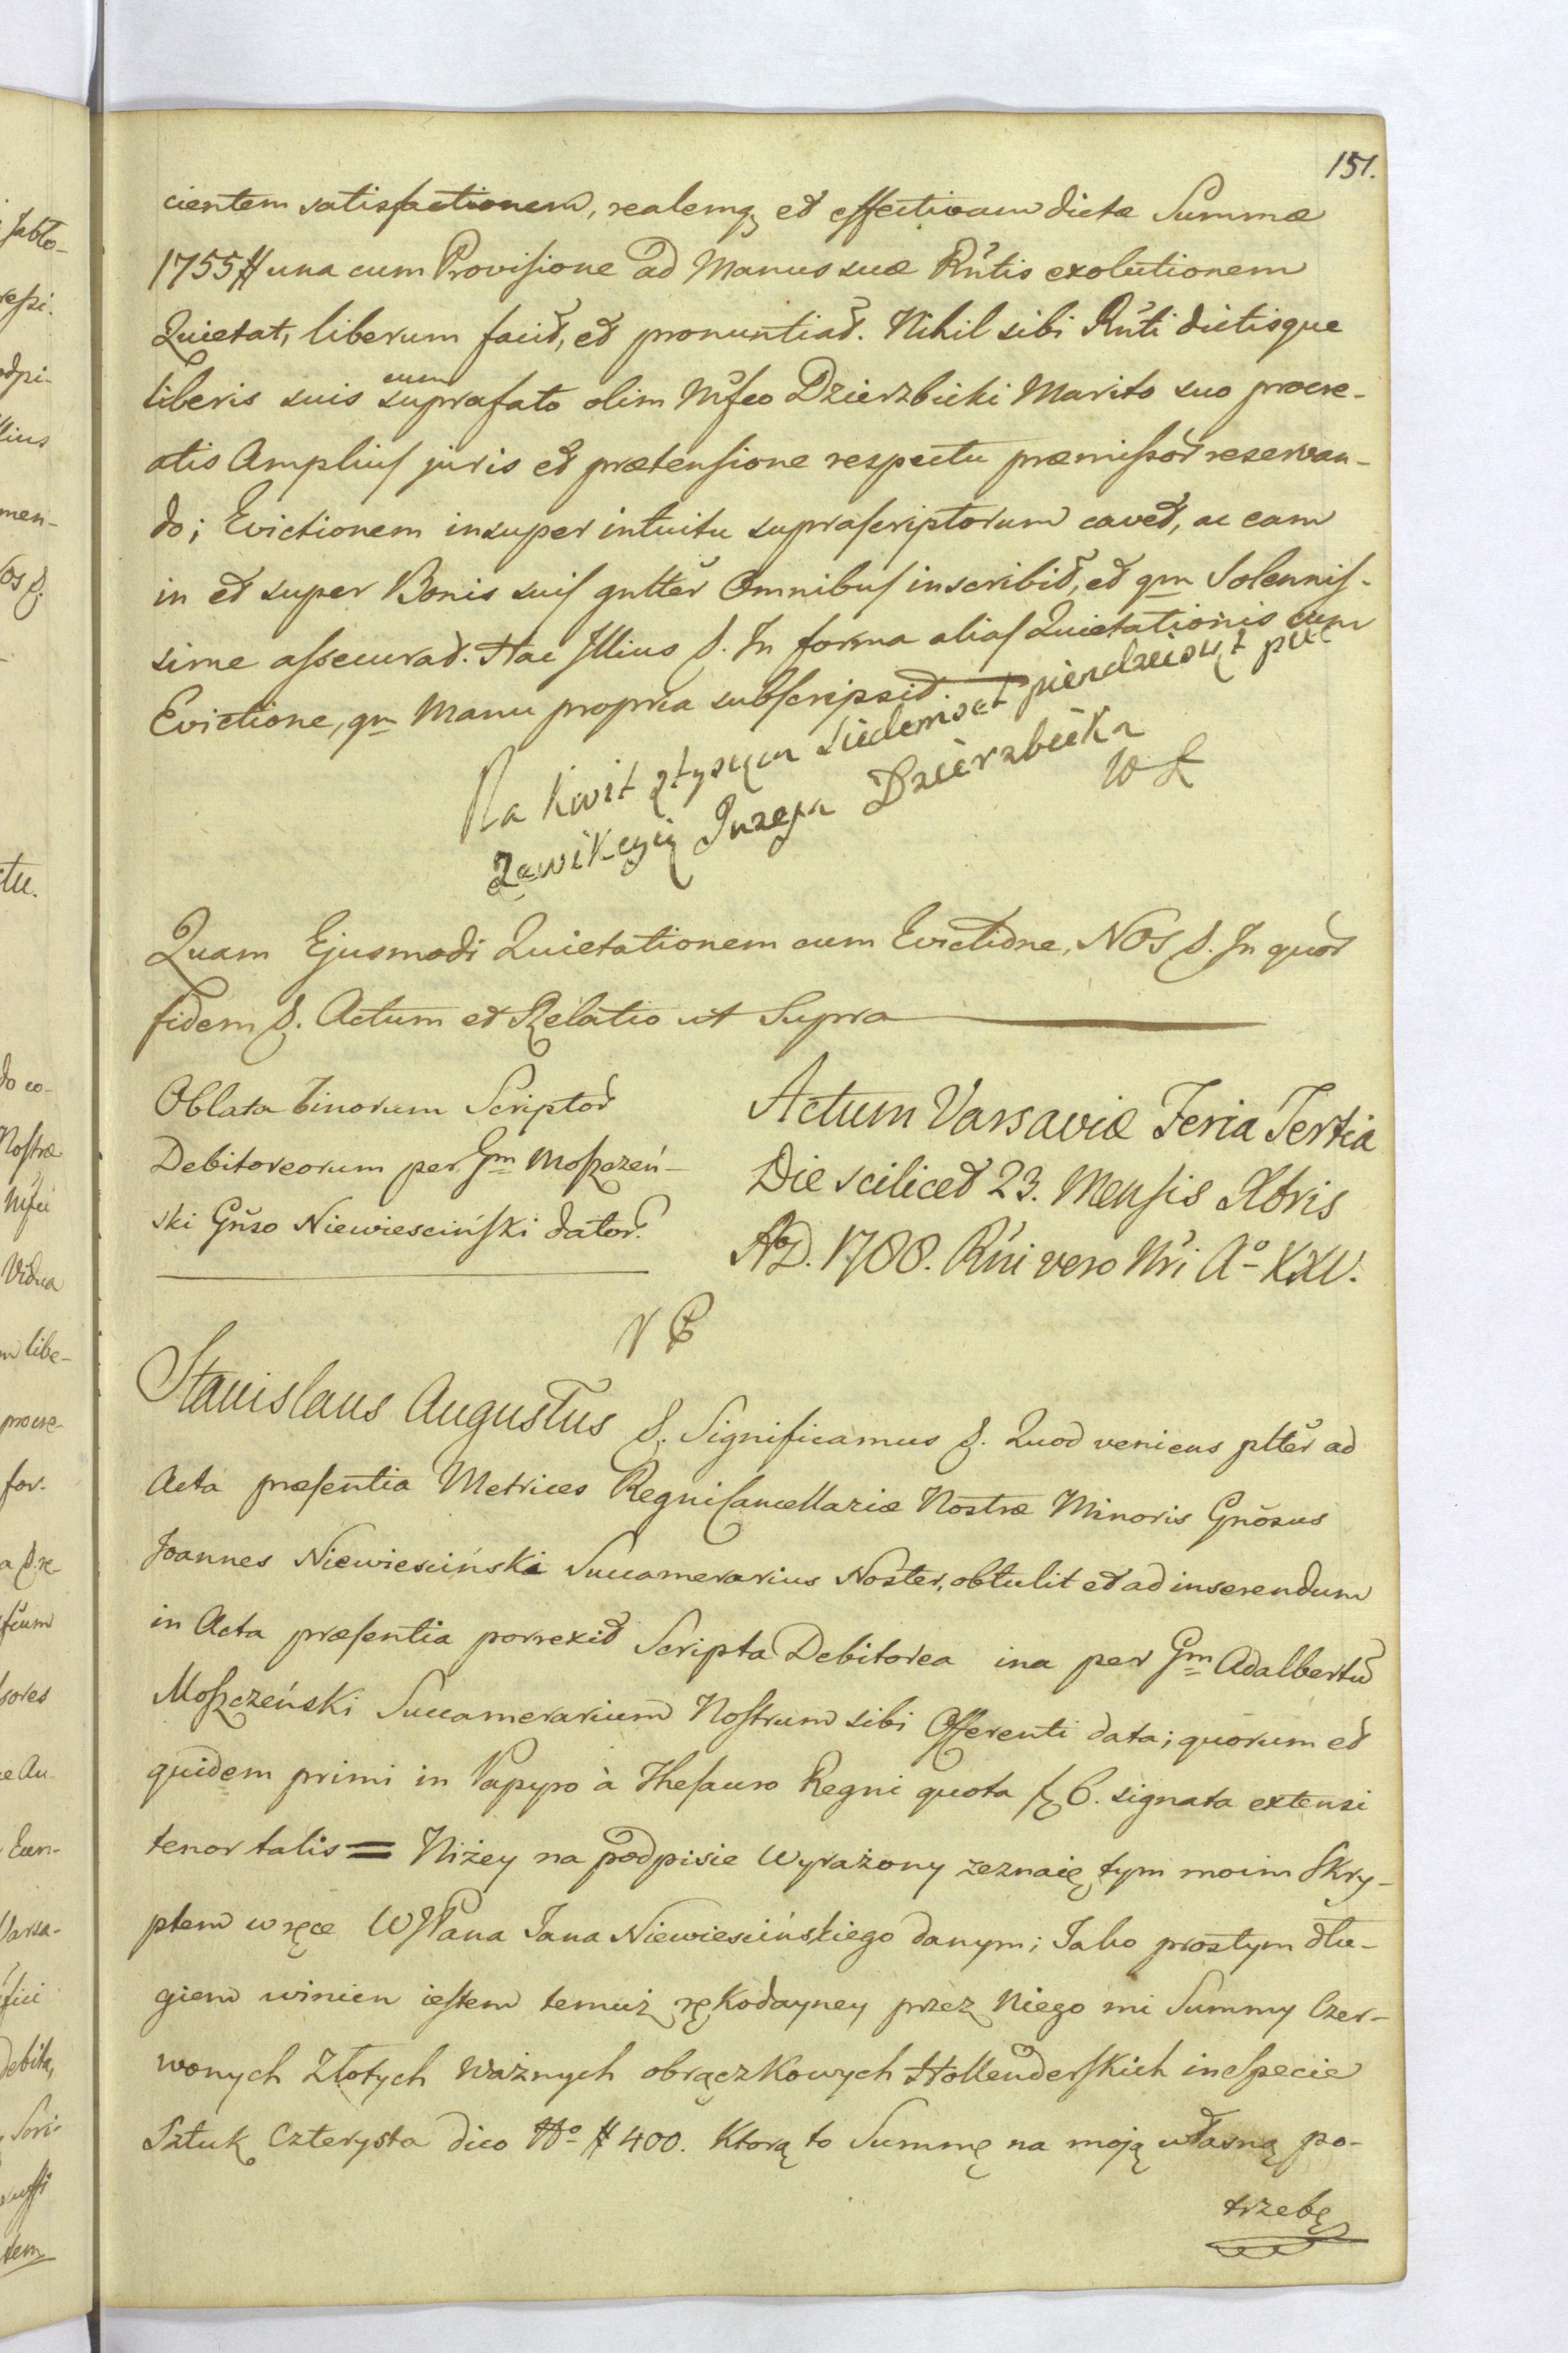 151.
cientem satisfactionem, realemq; et effectivam dictæ Summæ
1755 # una cum Provisione ad Manus suæ Rñtis exolutionem
Quietat, liberum facit, et pronuntiat. Nihil sibi Rñti dictisque
liberis suis cum suprafato olim Mfco Dzierzbicki Marito suo procre-
atis Amplius juris et prætensione respectu præmissor reservan-
do; Evictionem insuper intuitu suprascriptorum cavet, ac eam
in et super Bonis suis gnlter Omnibus inscribit, et qm Solennis-
sime assecurat. Hac Illius &. In forma alias Quietationis cum
Evictione, qm Manu propria subscripsit.
Na kwit ztysąca Siedemset pierdzieiąt pięc
Zewikcyią Juzefa Dzierzbicka
Quam Ejusmodi Quietationem cum Evictione, NOS &. In quor
fidem &. Actum et Relatio ut Supra
Oblata binorum Scriptor
Debitoreorum per Gm Moszczeń-
ski Gñso Niewiesciński dator.
Actum Varsaviæ Feria Tertia
Die scilicet 23. Mensis Xbris
AD. 1788. Rñi vero Nři Aº XXV.
Stanislaus Augustus &. Significamus &. Quod veniens plter ad
Acta præsentia Metrices Regni Cancellariæ Nostræ Minoris Gñosus
Joannes Niewiesciński Succamerarius Noster, obtulit et ad inserendum
in Acta præsentia porrexit Scripta Debitorea ina per Gm Adalbertū
Moszczeński Succamerarium Nostrum sibi Offerenti data; quorum et
quidem primi in Papyro à Thesauro Regni quota 6. signata extensi
tenor talis = Niżey na podpisie Wyrażony zeznaię tym moim Skry-
ptem w ręce WPana Jana Niewiescińskiego danym; Jako prostym dłu-
giem winien iestem temuż rękodayney przez Niego mi Summy Czer-
wonych Złotych ważnych obrączkowych Hollenderskich in Specie
Sztuk Czterysta dico Nº # 400. Ktorą to Summę na moją własną po-
trzebę